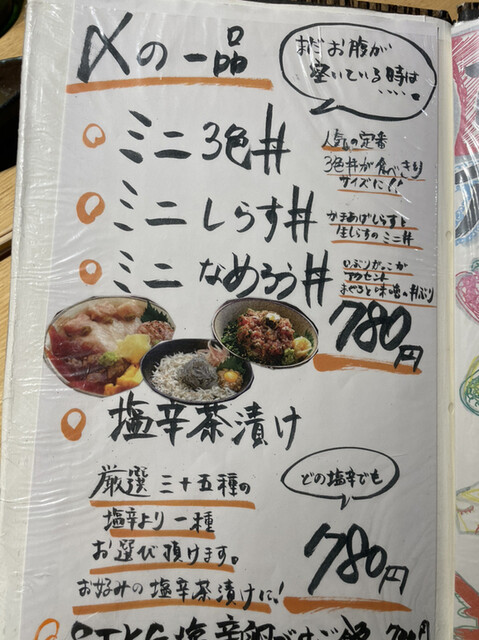 〆の一品
まだお腹が
空いている時は
・・・・。
ミニ3色丼
人気の定番
3色丼が食べきり
サイズに!!
ミニしらす丼
かまあげしらすと
生しらすのミニ丼
ミニなめろう丼
いぶりがっこが
アクセント
780円
塩辛茶漬け
厳選三十五種の
塩辛より一種
お選び頂けます。
お好みの塩辛茶漬けに!
どの塩辛でも
780円